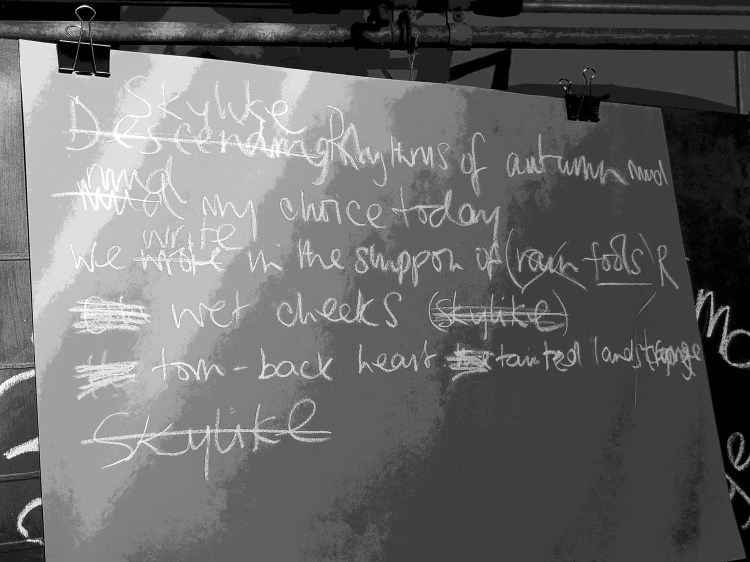 Skylike
Descending Rhythms of autumn mud
mind my choice today
write
We wrote in the simppon of (rain fools) R
wet cheeks (skylike)
torn-back heart tainted
Skylike
Mo